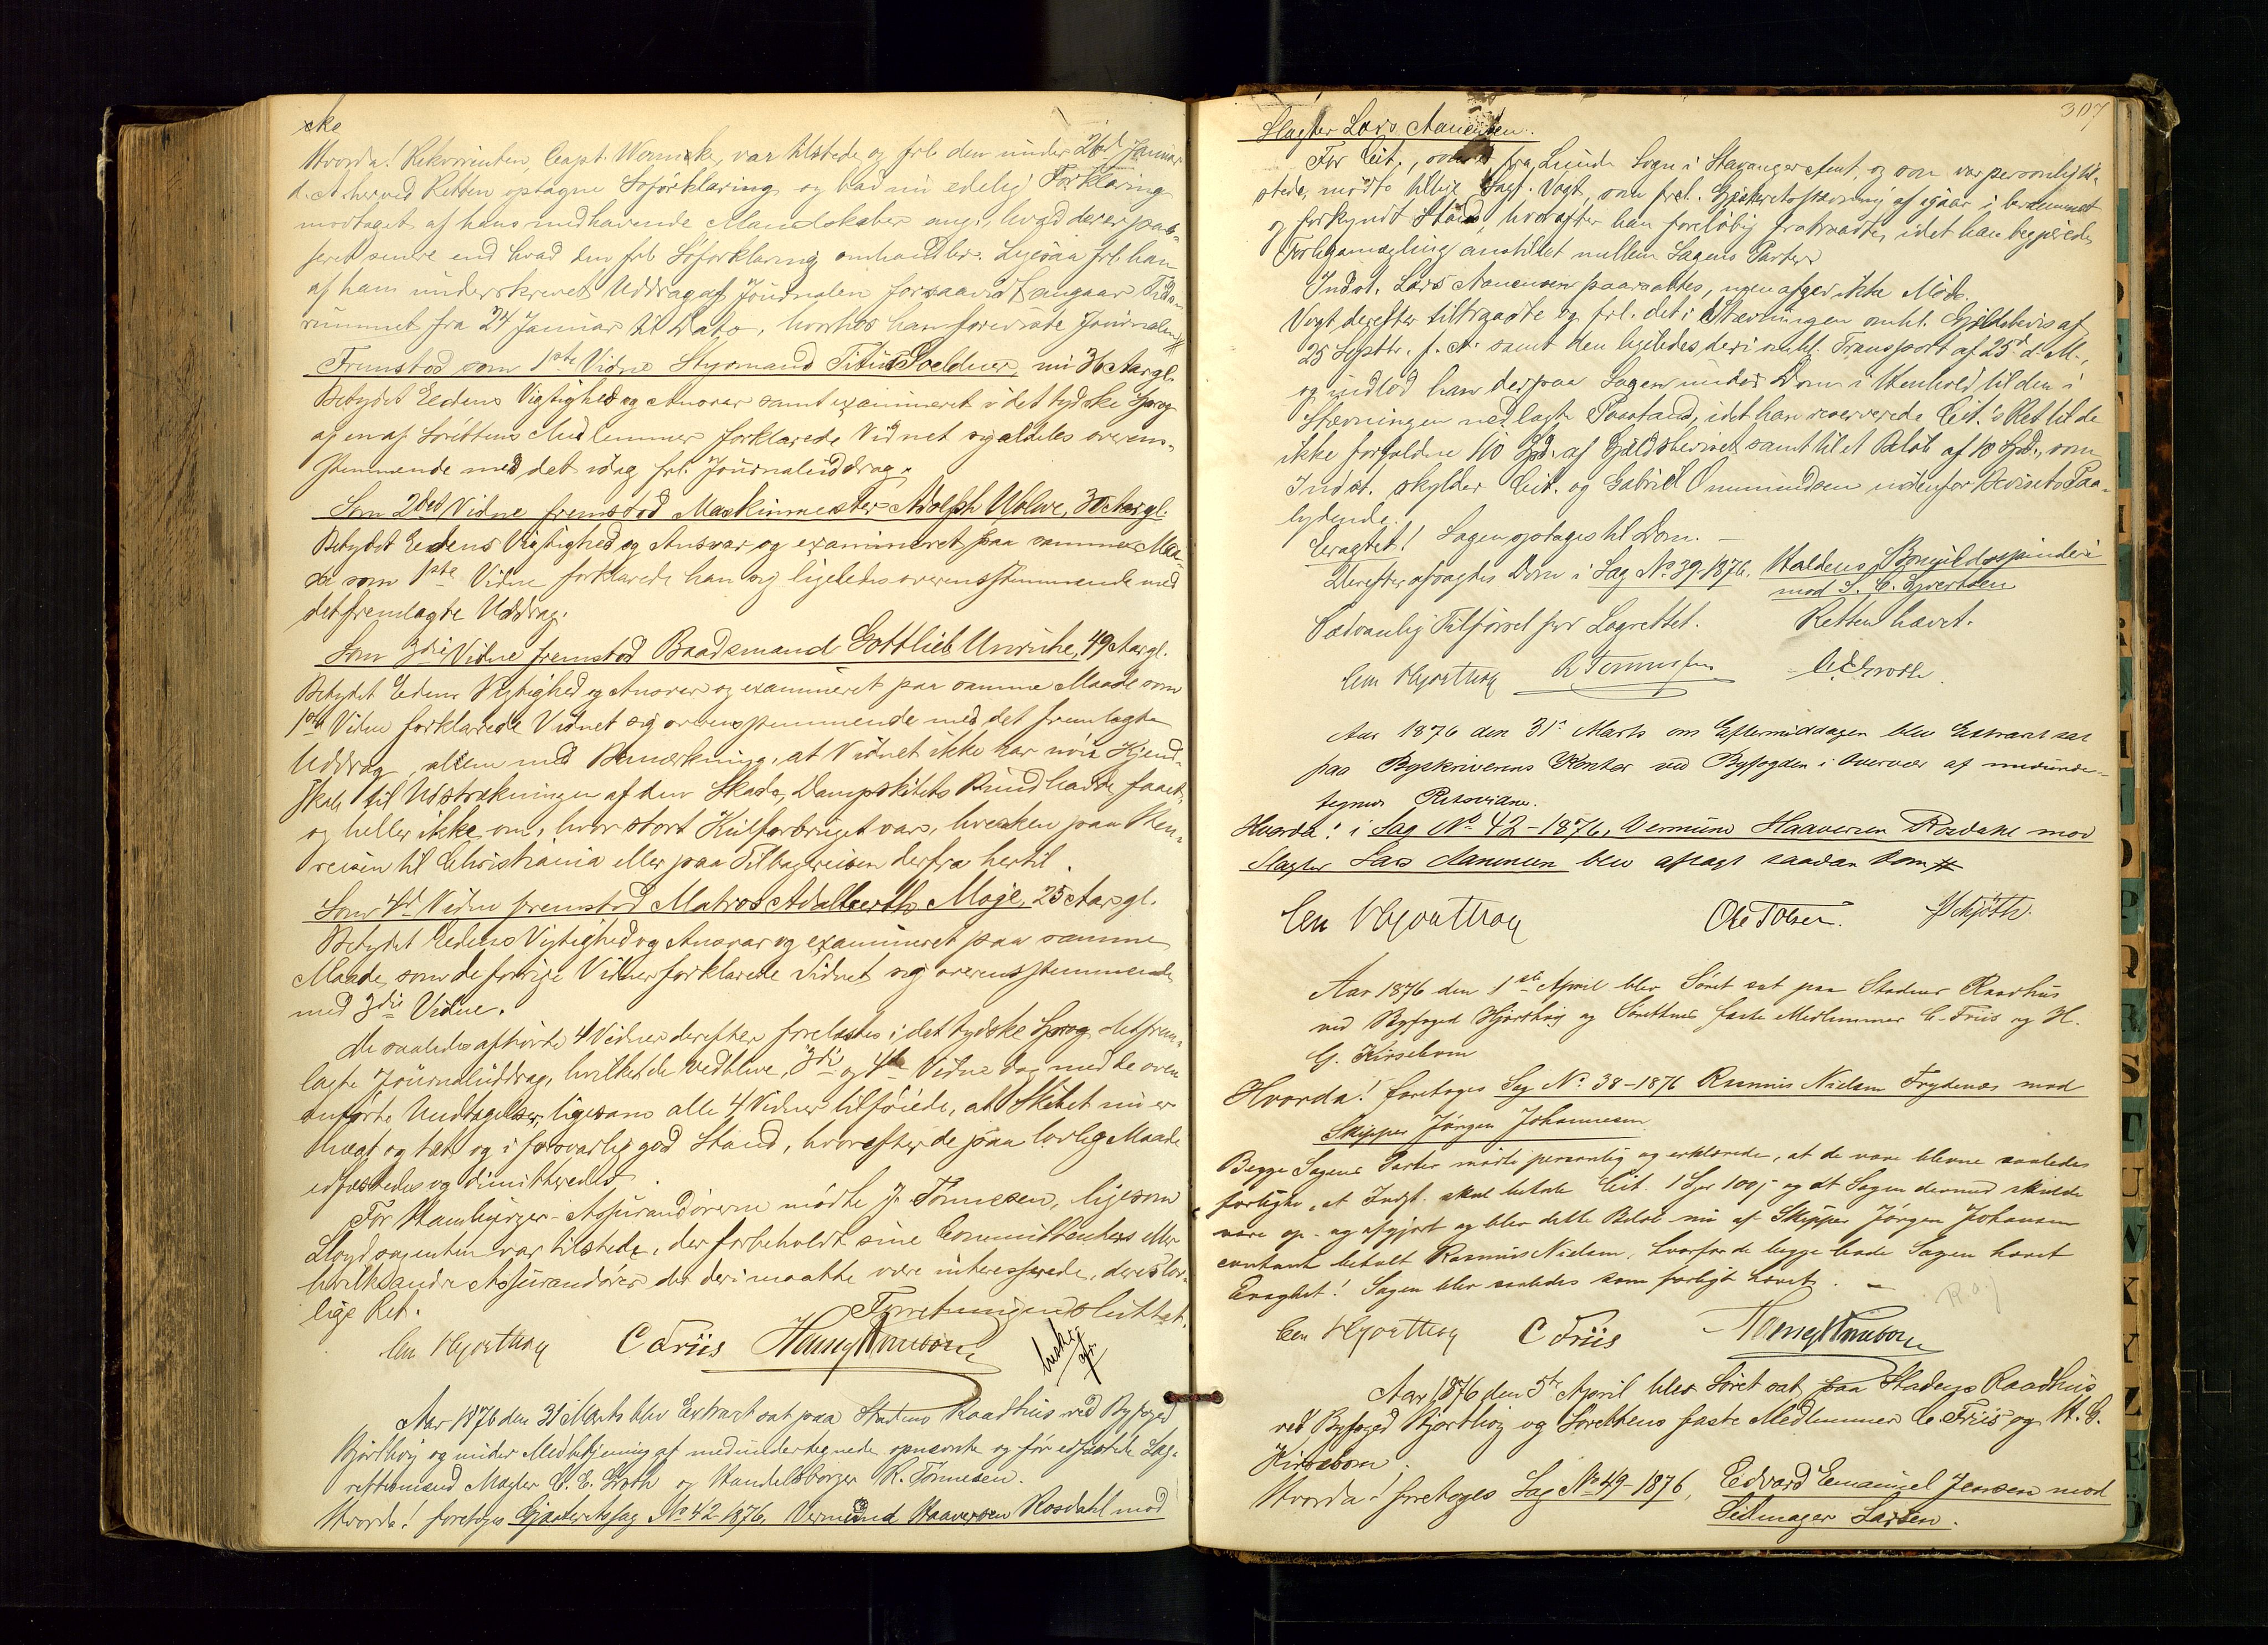 ske
Hvorda! Rekvirenten, Capt. Wernske, var tilstede og frl. den under 26d Januar
d. A. her ved Retten optagne Søforklaring og bad nu edelig Forklaring
modtaget af hans medhavende Mandskaber ang., hvad der er pas-
seret senere end hvad den frl. Søforklaring omhandler. Ligesaa frl. han
af ham underskrevet Uddrag af Journalen forsaavidt angaar Tids-
rummet fra 24 Januar til Dato, hvorhos han foreviste Journalen
Fremstod som 1ste Vidne Styrmand Titus Soeldner, nu 36 Aar gl.
Betydet Eedens Vigtighed og Ansvar samt examineret i det tydske Sprog
af en af Sørettens Medlemmer forklarede Vidnet sig aldeles overens-
stemmende med det idag frl. Journaluddrag.
Som 2det Vidne fremstod Maskinmester Adolph Wolwe, 30 Aar gl.
Betydet Eedens Vigtighed og Ansvar og examineret paa samme Maa-
de som 1ste Vidne forklarede han sig ligeledes overensstemmende med
det fremlagte Uddrag.
Som 3die Vidne fremstod Baadsmand Gottlieb Unruhe, 49 Aar gl.
Betydet Edens Vigtighed og Ansvar og examineret paa samme Maade som
1ste Vidne forklarede Vidnet sig overensstemmende med det fremlagte
Uddrag, alene med Bemærkning, at Vidnet ikke har nøie Kjend-
skab til Udstrækningen af den Skade, Dampskibets Bund havde faaet,
og heller ikke om, hvor stort Kulforbruget var, hverken paa Hen-
reisen til Christiania eller paa Tilbagereisen derfra hertil.
Som 4d Vidne fremstod Matros Adalberth Moje, 25 Aar gl.
Betydet Eedens Vigtighed og Ansvar og examineret paa samme
Maade som de forrige Vidner forklarede Vidnet sig overensstemmende
med 3die Vidne.
De saaledes afhørte 4 Vidner derefter forelæstes i det tydske Sprog det frem-
lagte Journaluddrag, hvilket de vedbleve, 3die og 4de Vidne dog med de oven
anførte Undtagelser, ligesom alle 4 Vidner tilføiede, at Skibet nu er
tæt og i forsvarlig god Stand, hvorefter de paa lovlig Maade
edfæstedes og dimitteredes.
For Hamburger-Assurandørerne mødte J. Tønnesen, ligesom
Lloydsagenten var tilstede, der forbeholdt sine Committenters eller
hvilke andre Assurandører der deri maatte være interesserede, deres lov-
lige Ret.
Forretningen sluttet.
Chr Hjorthøy C Friis
Aar 1876 den 31 Marts blev Extraret sat paa Stadens Raadhus ved Byfoged
Hjorthøy og under Medbetjening af medundertegnede opnævnte og før edfæstede Lag-
rettemænd Mægler C. E. Groth og Handelsborger R. Tønnesen.
Hvorda! foretoges Gjæsteretssag No 42 1876, Vermund Haaversen Rosdahl mod
307
Slagter Lars Aanensen.
For Cit., fra Lunde Sogn i Stavanger Amt, og som var personlig til-
stede, mødte tillige Sagf. Vogt, som frl. Gjæsteretsstævning af igaar i berammet
og forkyndt Stand, hvorefter han foreløbig fratraadte, idet han begjærede
Forligsmægling anstillet mellem Sagens Parter.
Indst. Lars Aanensen paaraabtes, men afgav ikke Møde.
Vogt derefter tiltraadte og frl. det i Stævningen omhl. Gjeldsbevis af
25 Septbr. f. A. samt den ligeledes deri omhl. Transport af 25d d. M.,
og indlod han derpaa Sagen under Dom i Henhold til den i
Stævningen nedlagte Paastand, idet han reserverede Cit.s Ret til de
ikke forfaldne 110 Spd. af Gjeldsbeviset samt til et Beløb af 10 Spd., som
Indst. skylder Cit. og Gabriel Ommundsen udenfor Bevisets Paa-
lydende.
Eragtet! Sagen optages til Dom. —
Derefter afsagdes Dom i Sag No 39-1876. Haldens Bomuldsspinderi
mod S. C. Syvertsen
Sædvanlig Tilførsel for Lagrettet. Retten hævet.
Chr Hjorthøy R Tønnessen C.E. Groth
Aar 1876 den 31te Marts om Eftermiddagen blev Extraret sat
paa Byskriverens Kontor ved Byfogden i Overvær af medunder-
tegnede Retsvidner.
Hvorda! i Sag No 42-1876, Vermund Haaversen Rosdahl mod
Slagter Lars Aanensen blev afsagt saadan Dom
Chr Hjorthøy Ole Tolsen. Schjøth.
Aar 1876 den 1ste April blev Søret sat paa Stadens Raadhus
ved Byfoged Hjorthøy og Sørettens faste Medlemmer C. Friis og H.
G. Kirsebom
Hvorda! foretoges Sag No 38-1876 Rasmus Nielsen Frydenæs mod
Skipper Jørgen Johannesen
Begge Sagens Parter mødte personlig og erklærede, at de vare blevne saaledes
forligte, at Indst. skal betale Cit. 1 Spd 100 og at Sagen dermed skulde
være op- og afgjort og blev dette Beløb nu af Skipper Jørgen Johansen
contant betalt Rasmus Nielsen, hvorfor de begge bade Sagen hævet
Eragtet! Sagen blev saaledes som forligt hævet. —
Chr Hjorthøy C Friis
Aar 1876 den 5te April blev Søret sat paa Stadens Raadhus
ved Byfoged Hjorthøy og Sørettens faste Medlemmer C. Friis og H. G.
Kirsebom.
Hvorda! foretoges Sag No 49-1876, Edvard Emanuel Jensen mod
Seilmager Larsen.